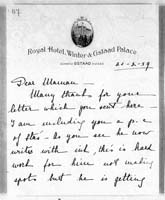 Royal Hotel, Winter & Gstaad Palace
GSTAAD
Dear Maman —
Many thanks for your
letter which you sent here —
I am including you a p. c
of this — As you see he now
writes with ink, this is hard
work for him not making
spots but he is getting